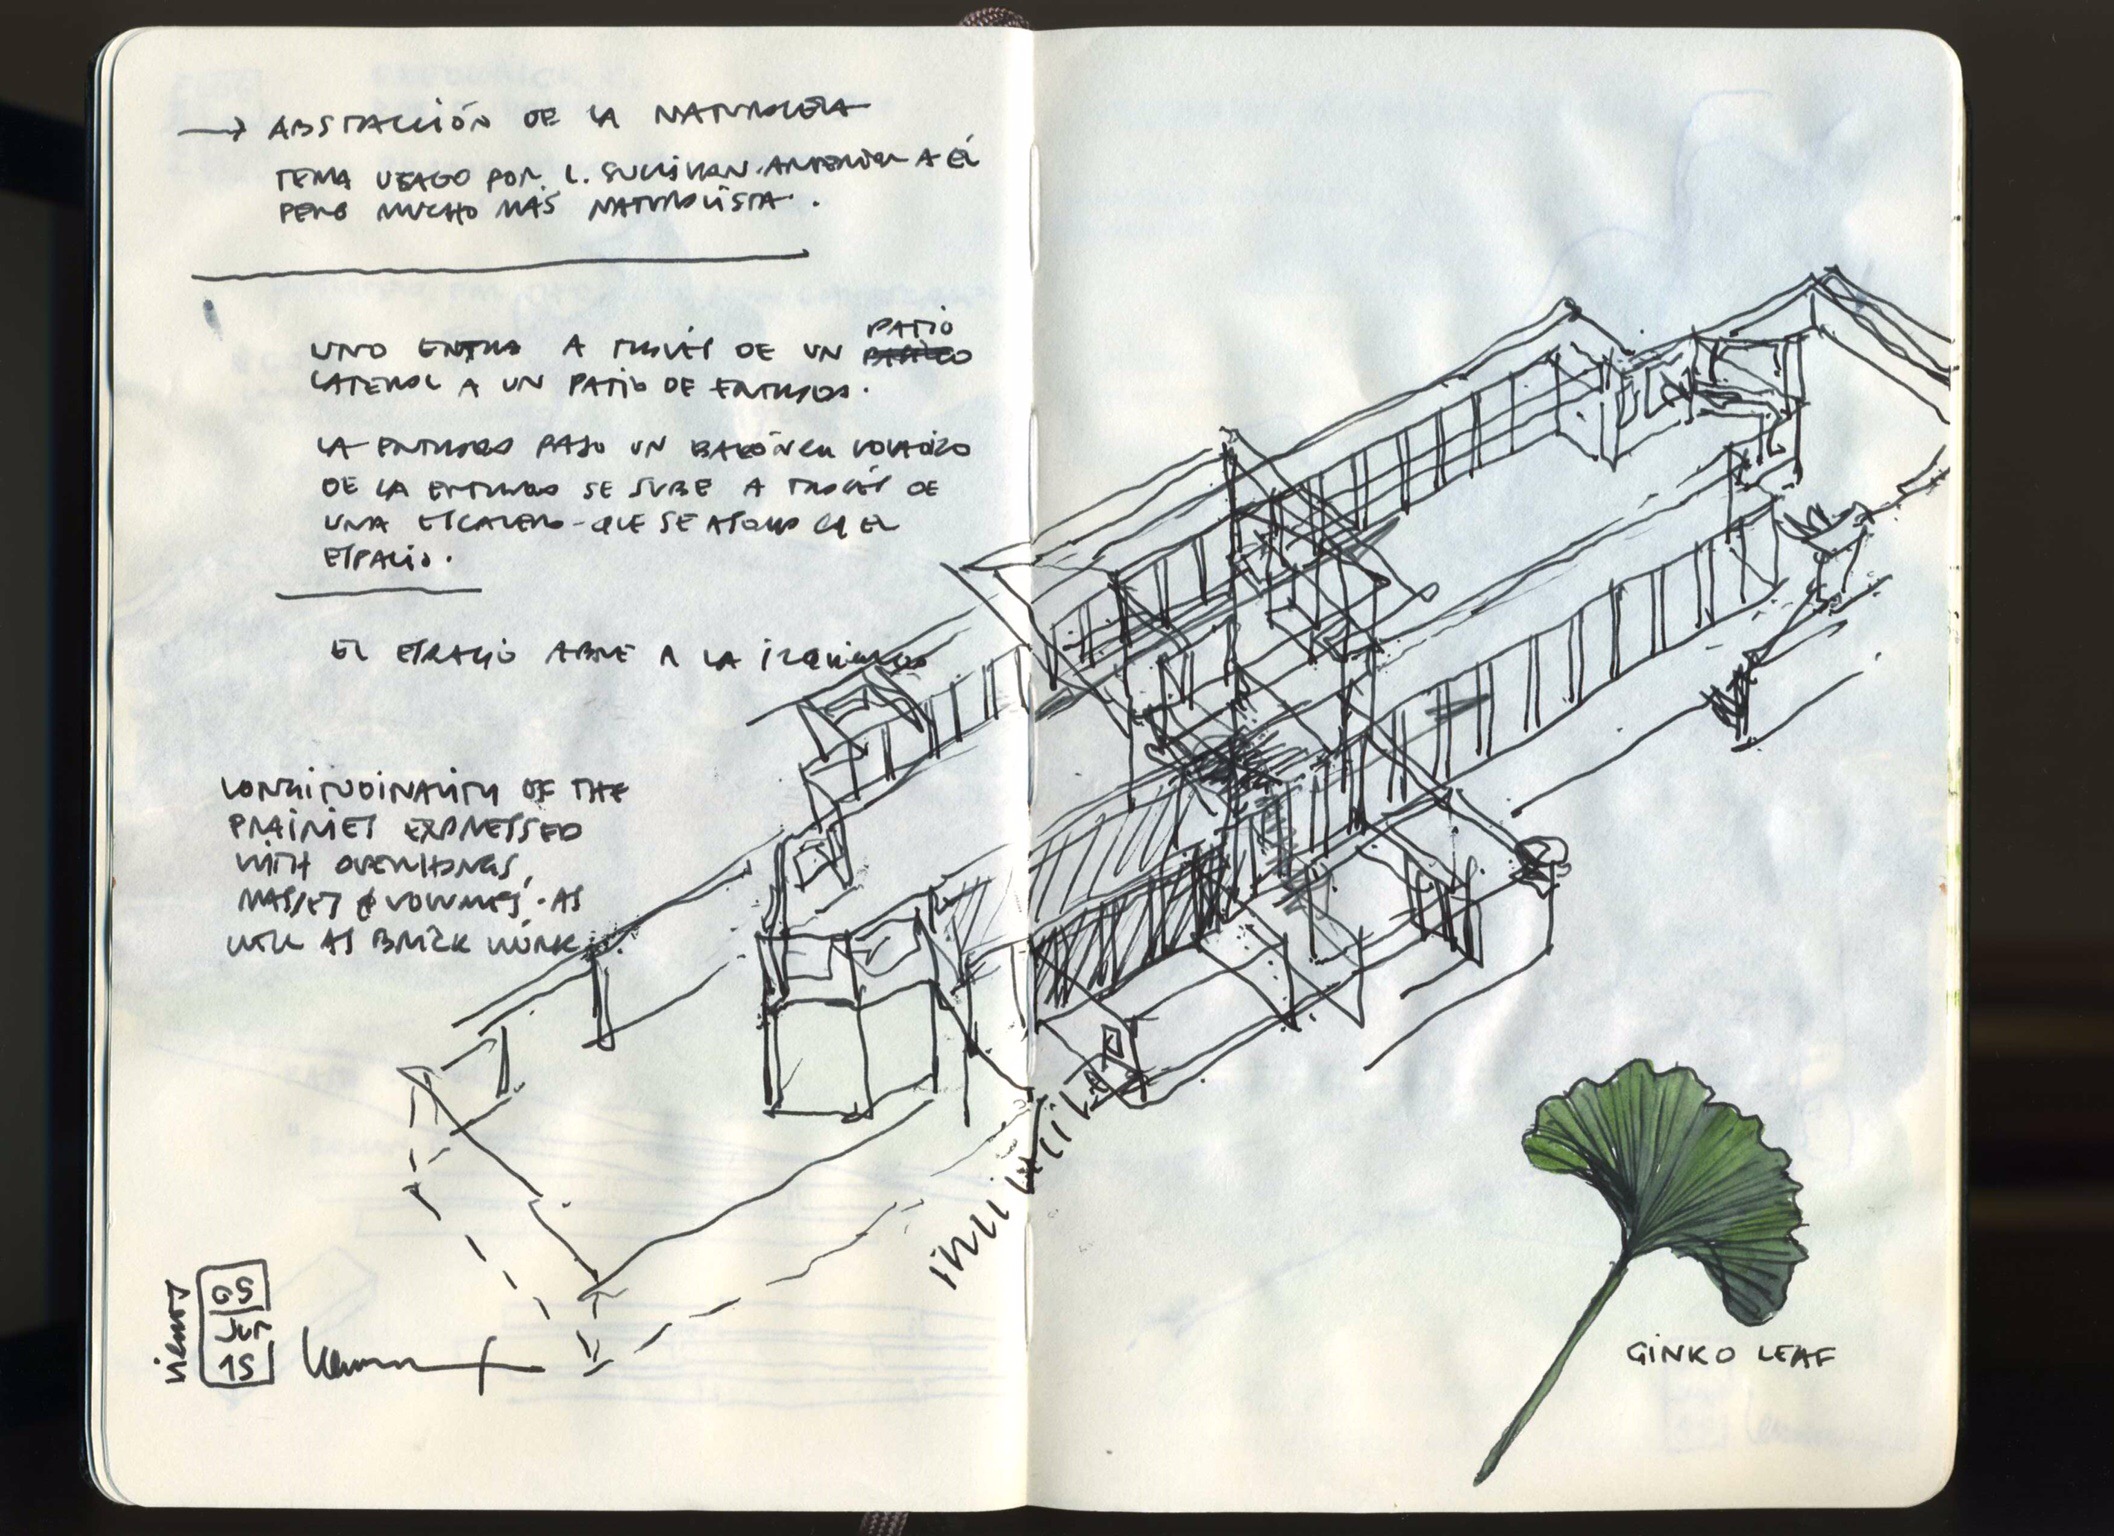 → ABSTRACCIÓN DE LA NATURALEZA
TEMA USADO POR L. SULLIVAN. ANTERIOR A ÉL
PERO MUCHO MÁS NATURALISTA.
UNO ENTRA A TRAVÉS DE UN PATIO
LATERAL A UN PATIO DE ENTRADA.
LA ENTRADA BAJO UN BALCÓN EN VOLADIZO
DE LA ENTRADA SE SUBE A TRAVÉS DE
UNA ESCALERA - QUE SE ASOMA EN EL
ESPACIO.
EL ESPACIO ABRE A LA IZQUIERDA
LONGITUDINALITY OF THE
PRAIRIES EXPRESSED
WITH OVERHANGS,
MASSES & VOLUMES. AS
WELL AS BRICK WORK
VIERNES
05
JUN
15
GINKO LEAF